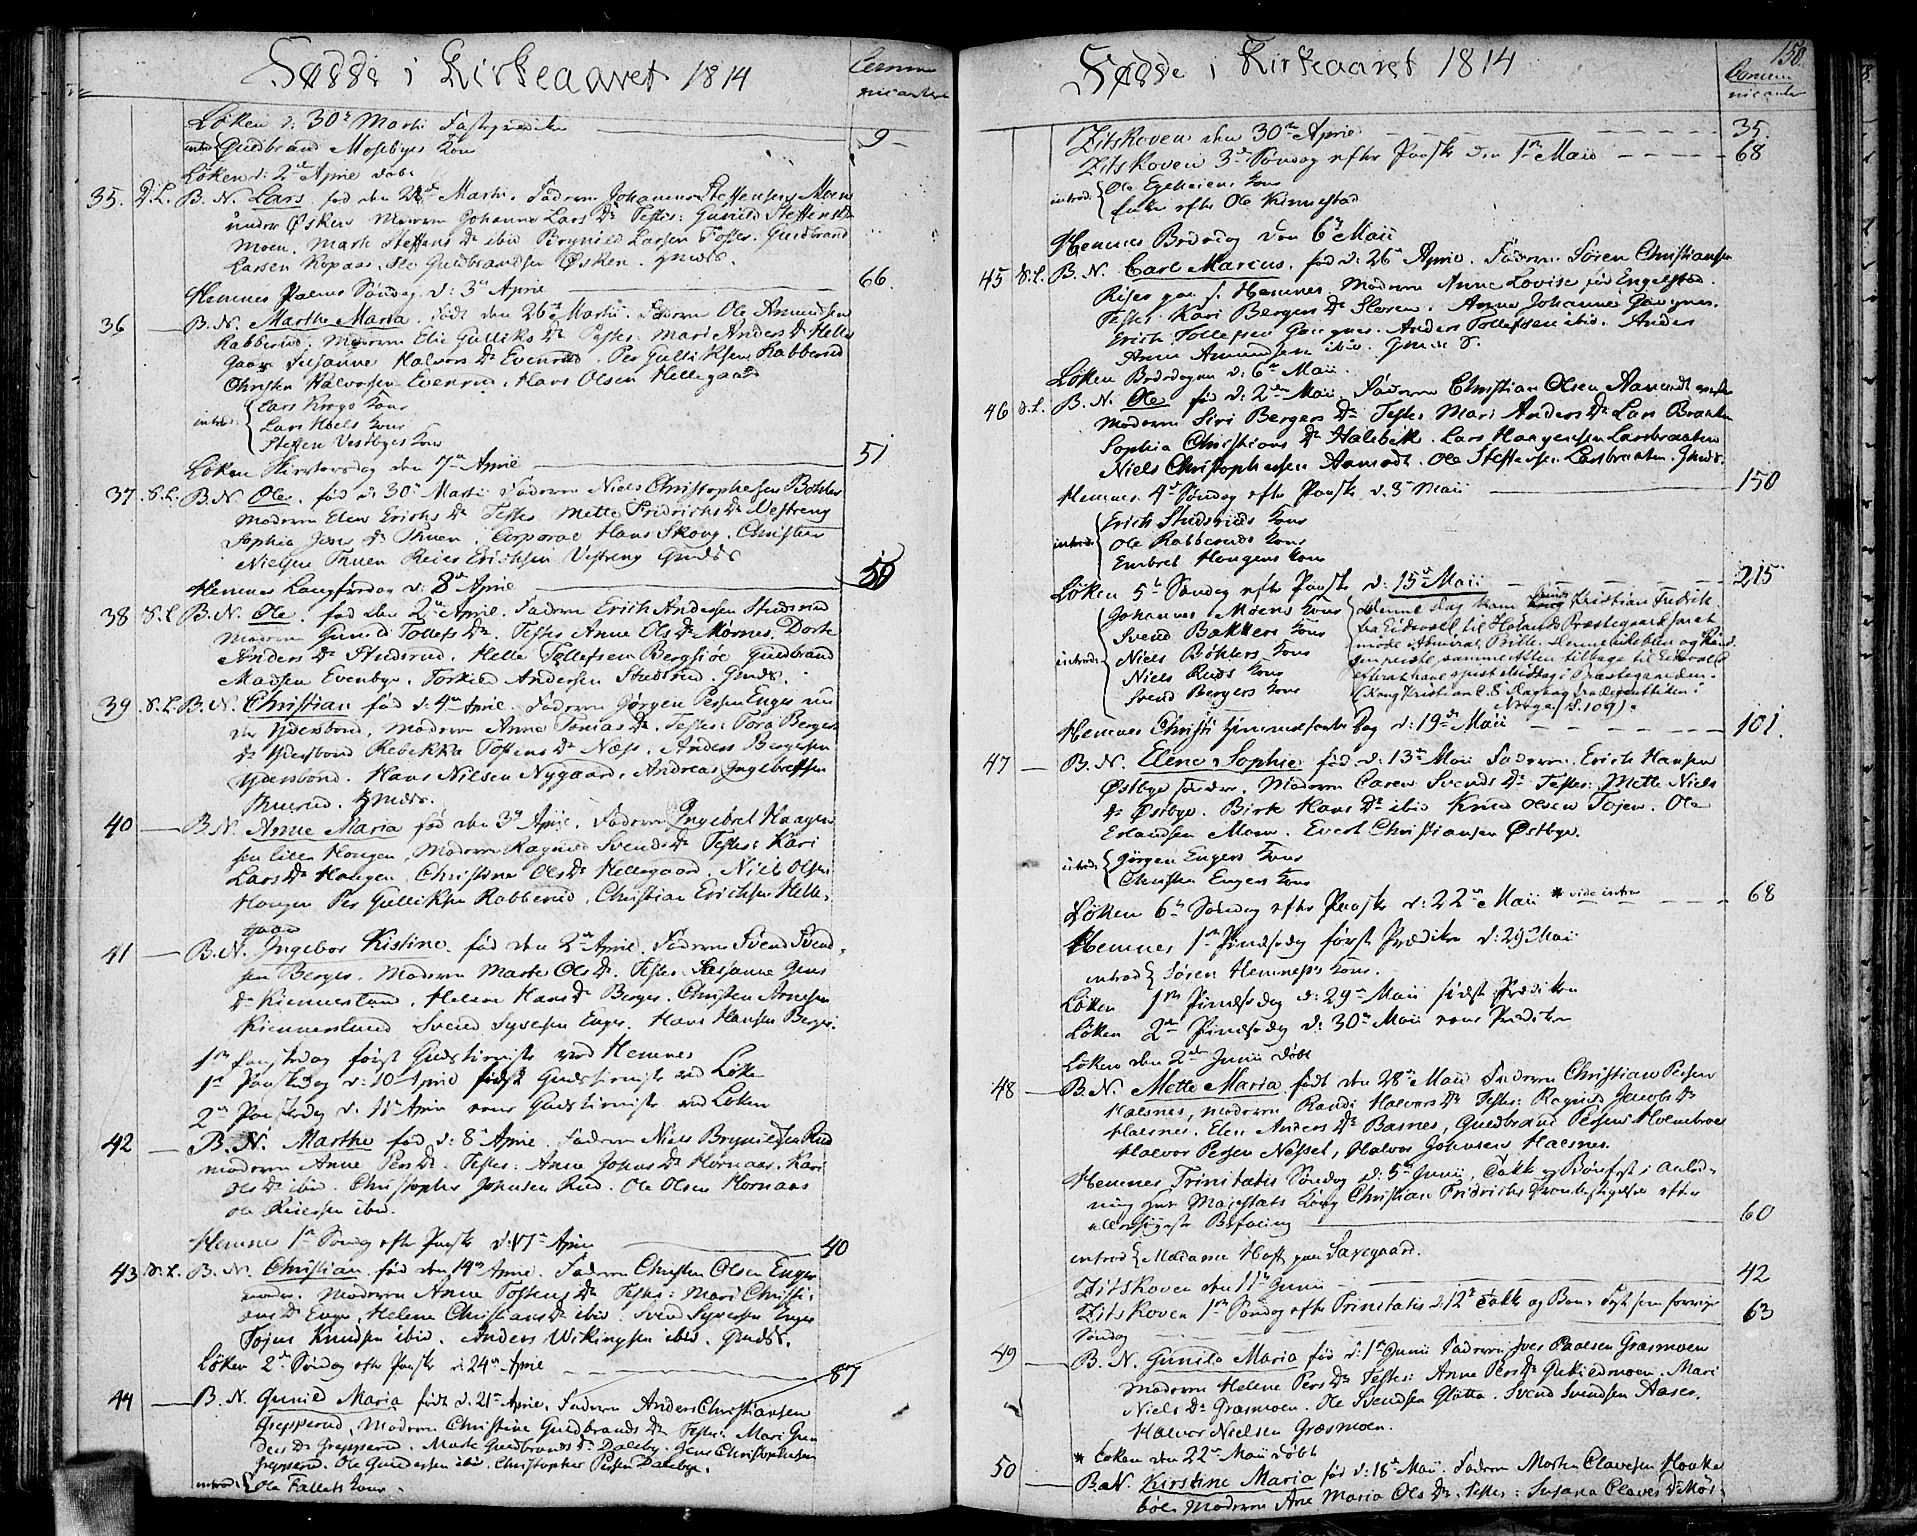 Fødde i Kirkeaaret 1814
Commu
nicanter
Løken d: 30te Martii Fastepræken
9
introd: Gudbrand Mosebyes Kone
Løken d: 2den April døbt
35. D.L. B. N. Lars, fød den 22de Martii. Faderen Johannes Steffensen Moen
under Øsken Moderen Johanne Lars Dr. Testes: Gunild Steffens Dr
Moen. Marte Steffens Dr ibid Brynild Larsen Gudbrand
Larsen Kopaas. Ole Gudbrandsen Øsken.
Hemnes Palme Søndag d: 3de April
66.
36 B. N. Marthe Maria. født den 26de Martii. Faderen Ole Amundsen
Rabberud. Moderen Elie Gulliks Dr Testes: Mari Anders Dr Helle
gaar Susanne Halvors Dr Evenrud. Per Gulliksen Rabberud
Christen Halvorsen Evenrud. Hans Olsen Hellegaard
introd: Lars Krogs Kone
Lars Kone
Steffen Vestbyes Kone
Løken Skiertorsdag den 7de April
51
37. S.L. B. N. Ole. fød d: 30te Martii Faderen Niels Christophersen Bøhler
Moderen Elen Erichs Dr Testes Mette Fridrichs Dr Vestreng
Sophia Jens Dr Thuen, Corporal Hans Skoug. Christen
Nielsen Thuen Reier Erichsen Vestreng
Hemnes Langfredag d: 8de April
50
38 S.L. B. N. Ole. fød den 2den April. Faderen Erich Andersen Studsrud
Moderen Gunild Tollefs Dr. Testes Anne Ols Dr Mørnes. Dorte
Anders Dr Studsrud. Helle Tollefsen Bergsiøe Gudbrand
Madsen Evenbye. Torkild Andersen Studsrud.
39. S.L. B. N. Christian fød d: 4de April. Faderen Jørgen Persen Enger un
der Ydersbond, Moderen Anne Tomas Dr. Testes: Tora Berger
Dr Ydersbond Rebekka Tostens Dr Næss. Anders Bergersen
Ydersbond. Hans Nielsen Nygaard. Andreas Ingebretsen
40 B. N. Anne Maria fød den 3de April. Faderen Ingebret Haagen
sen lille Hougen, Moderen Ragnild Svends Dr Testes: Kari
Lars Dr Hougen, Christine Ols Dr Hellegaard. Niels Olsen
Hougen Per Gulliksen Rabberud. Christian Erichsen Helle-
gaard
41 B. N. Ingebor Kistine. fød den 2den April. Faderen Svend Svend-
sen Berger. Moderen Marte Ols Dr. Testes. Susanne
Dr Kiennerslund. Helene Hans Dr Berger. Christen Arnesen
Kiennerslund Svend Syversen Enger. Hans Hansen Berger.
1ste Paaskedag først Gudstieniste ved Hemnes
1ste Paaskedag d: 10 April sidste Gudstieniste ved Løken
2den Paaskedag d: 11te April Gudstieniste ved Løken
42 B. N. Marthe fød d: 8de April. Faderen Niels Brynildsen Rud
Moderen Anne Pers Dr. Testes: Anne Johns Dr Hornaas. Kari
Ols Dr ibid. Christopher Johnsen Rud. Ole Olsen Hornaas
Ole ibid.
Hemnes 1ste Søndag efter Paaske d: 17de April
40
43 S.L. B. N. Christian fød den 14de April. Faderen Christen Olsen Enger
Moderen Anne Tostens Dr Testes: Mari Christi-
ans Dr Enger, Helene Christians Dr ibid. Svend Syversen Enger
Tojus Knudsen ibid. Anders Wikingsen ibid.
Løken 2den Søndag efter Paaske d: 24de April
87
44 B. N. Gunild Maria født d: 21de April. Faderen Anders Christiansen
Grepperud, Moderen Christine Gudbrands Dr Testes: Mari Gun
ders Dr Grepperud. Marte Gudbrands Dr Daleby. Jens Christophersen
Grepperud. Ole Gundersen ibid. Christopher Persen Dalebye.
introd: Ole Fallets Kone.
Fødde i Kirkeaaret 1814
150.
Commu
nicanter
Zitskoven den 30te April
35.
Zitskoven 3die Søndag efter Paaske den 1ste Maii
68
introd: Ole Egeheiens Kone
Enke efter Ole Kinnestad
Hemnes Bededag den 6te Maii
45 S.L. B. N. Carl Marcus. fød d: 26de April. Faderen Søren Christiansen
Hemnes. Moderen Anne Lovise fød Engelstad.
Testes. Kari Bergers Dr Slersen. Anne Johanne
Erich Tollefsen Anders Tollefsen ibid. Anders
Amundsen ibid.
Løken Bededagen d: 6te Maii.
46 S.L. B. N. Ole fød d: 2den Maii. Faderen Christian Olsen Aamodt
Moderen Siri Bergers Dr Testes Mari Anders Dr Lars Braaten
Sophia Christians Dr Halebæk. Lars Haagensen Larsbraaten
Niels Christophersen Aamodt. Ole Steffensen Larsbraaten.
Hemnes 4de Søndag efter Paaske d. 8de Maii
150
introd: Erich Studsruds Kone
Ole Rabberuds Kone
Embret Hougens Kone
Løken 5te Søndag efter Paaske d: 15de Maii
215
introd: Johannes Moens Kone
Svend Bakkers Kone
Niels Bøhlers Kone
Niels Ruds Kone
Svend Bergers Kone
Denne Dag kam Kristian Fredrik
fra Eidsvold til Hølands Præstegaard for at
møde Admiral
tilbage til Eidsvold
efterat have spist Middag i Præstegaarden.
(Kong Kristian 8.s Dagbog
Norge (S. 109).
Hemnes Christi Himmelfarts Dag d: 19de Maii
101.
47 B. N. Elene Sophie fød d: 13de Maii Faderen Erich Hansen
Østbye Moderen Caren Svends Dr Testes: Mette Niels
Dr Østbye. Birte Hans Dr ibid Knud Olsen Tojen. Ole
Erlandsen Moen. Evert Christiansen Østbye.
introd: Jørgen Engers Kone
Christen Engers Kone
Løken 6te Søndag efter Paaske d: 22de Maii * vide infra
68
Hemnes 1ste Pindsedag først Prædiken d: 29 Maii
introd Søren Hemness Kone.
Løken 1ste Pindsedag d: 29de Maii sidst Prædiken
Løken 2den Pindsedag d: 30te Maii Prædiken
Løken den 2den Junii døbt
48 B. N. Mette Maria født den 28de Maii Faderen Christian Persen
Halsnes, Moderen Randi Halvors Dr Testes: Ragnild Jacobs Dr
Halsnes. Eli Anders Dr Basnes, Gudbrand Persen Holmebroe
Halvor Persen Nesset, Halvor Johnsen Halsnes.
Hemnes Trinitatis Søndag d: 5te Junii, Takk og Bønfest i anled-
ning Hans Majestæts Kong Christian Fridrichs Tronbestigelse efter
allernaadigste Befaling
60
introd: Madame Hoff paa Savegaard.
Zitskoven den 11te Junii
42
Zitskoven 1ste Søndag efter Trinitatis d: 12te Takk og Bøn Fest som forrige
63
Søndag
49 B. N. Gunild Maria fød d: 1ste Junii Faderen Iver Paalsen Græsmoen
Moderen Helene Pers Dr Testes: Anne Pers Dr Mari
Niels Dr Græsmoen. Ole Svendsen Glotta. Svend Svendsen Aaser.
Halvor Nielsen Græsmoen.
* Løken den 22de Maii døbt
50 B. N. Kirstine Maria fød d: 18de Maii. Faderen Morten Clavesen Haake
bøl. Moderen Ane Maria Ols Dr. Testes: Susana Claves Dr